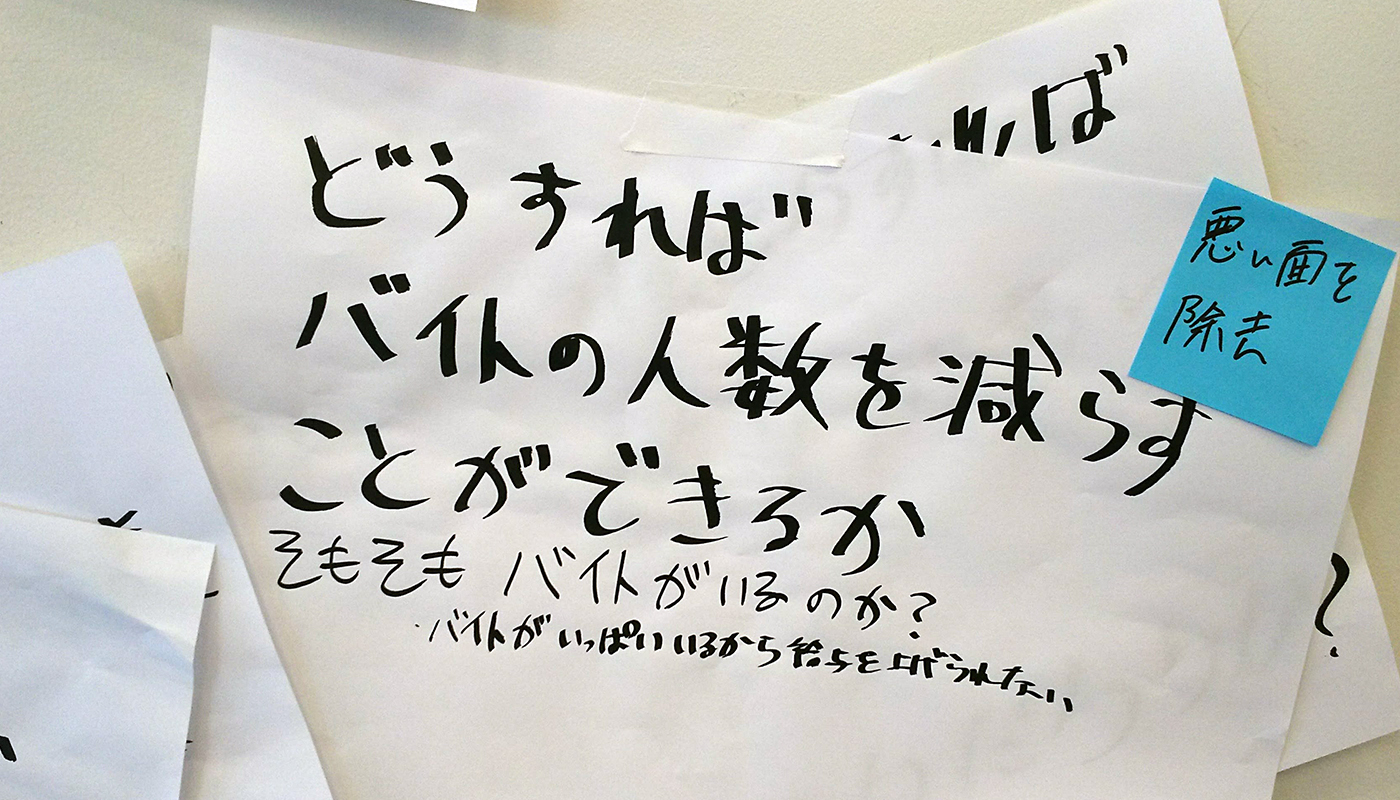 れば
どうすれば
バイトの人数を減らす
ことができるか
そもそも バイトがいるのか?
バイトがいっぱいいるから給与を上げられない
悪い面を
除去
?